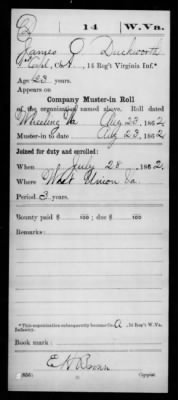 D 14 W.Va.
James O. Duckworth
Capt., Co. A, 14 Reg't Virginia Inf.*
Age 23 years.
Appears on
Company Muster-in Roll
of the organization named above. Roll dated
Wheeling Va Aug 23, 1862
Muster-in to date Aug 23, 1862
Joined for duty and enrolled:
When July 28, 1862
Where West Union Va.
Period 3 years.
Bounty paid $ 100; due $ 100
Remarks:
*This organization subsequently became Co. A, 14 Reg't W. Va.
Infantry.
Book mark:
(356) Copyist.